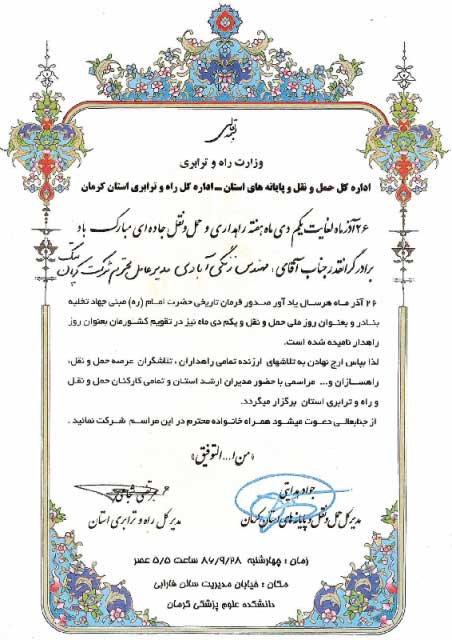 بسمه تعالی
وزارت راه و ترابری
اداره کل حمل و نقل و پایانه های استان ـ اداره کل راه و ترابری استان کرمان
۲۶ آذرماه لغایت یکم دی ماه هفته راهداری و حمل و نقل جاده ای مبارک باد
برادر گرانقدر جناب آقای، مهندس زنگی آبادی مدیر عامل محترم شرکت کرمان
۲۶ آذر ماه هرسال یاد آور صدور فرمان تاریخی حضرت امام (ره) مبنی جهاد تخلیه
بنادر و بعنوان روز ملی حمل و نقل و یکم دی ماه نیز در تقویم کشورمان بعنوان روز
راهدار نامیده شده است.
لذا بپاس ارج نهادن به تلاشهای ارزنده تمامی راهداران ، تلاشگران عرصه حمل و نقل،
راهسازان و... مراسمی با حضور مدیران ارشد استان و تمامی کارکنان حمل و نقل
و راه و ترابری استان برگزار میگردد.
از جنابعالی دعوت میشود همراه خانواده محترم در این مراسم شرکت نمائید .
«من ا... التوفیق»
جواد هدایتی
مدیرکل حمل و نقل و پایانه های استان کرمان
مرتضی شجاعی
مدیرکل راه و ترابری استان
زمان : چهارشنبه ۸۷/۹/۲۸ ساعت ۵/۵ عصر
مکان : خیابان مدیریت سالن فارابی
دانشکده علوم پزشکی کرمان